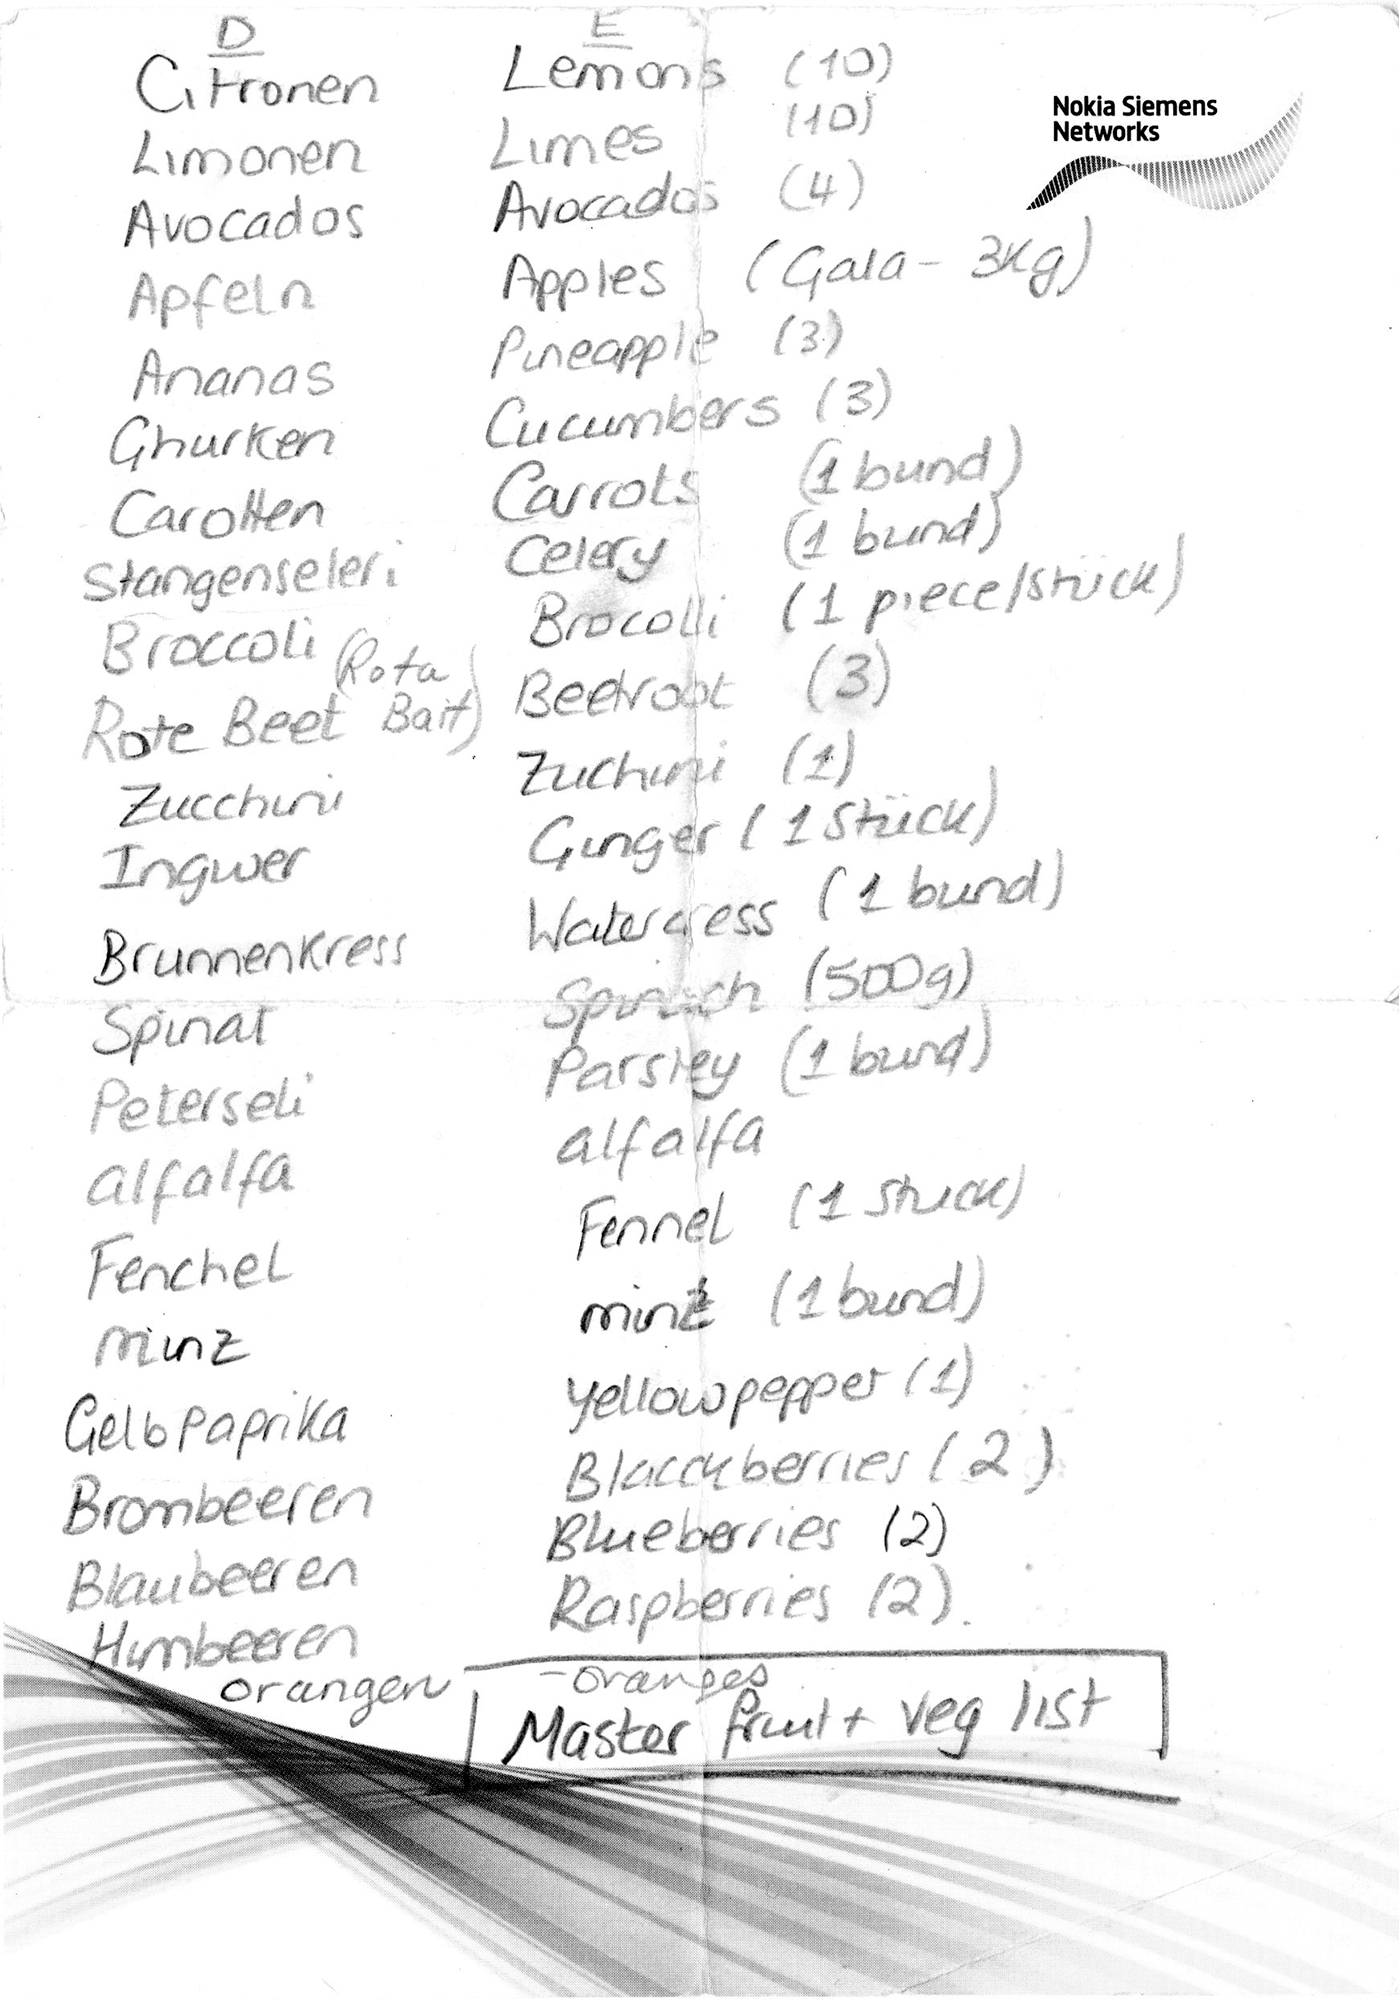 D E
Citronen Lemons (10)
Nokia Siemens
Networks
Limonen Limes (10)
Avocados Avocados (4)
Apfeln Apples (Gala - 3Kg)
Ananas Pineapple (3)
Ghurken Cucumbers (3)
Carotten Carrots (1 bund)
Stangenseleri Celery (1 bund)
Broccoli Brocolli (1 piece/stück)
Rote Beet (Rota Bait) Beetroot (3)
Zucchini Zuchini (1)
Ingwer Ginger (1 Stück)
Brunnenkress Watercress (1 bund)
Spinat Spinach (500g)
Peterseli Parsley (1 bund)
alfalfa alfalfa
Fenchel Fennel (1 Stuck)
minz minz (1 bund)
Gelb Paprika yellow pepper (1)
Brombeeren Blackberries (2)
Blaubeeren Blueberries (2)
Himbeeren Raspberries (2).
orangen - oranges
Master fruit + veg list